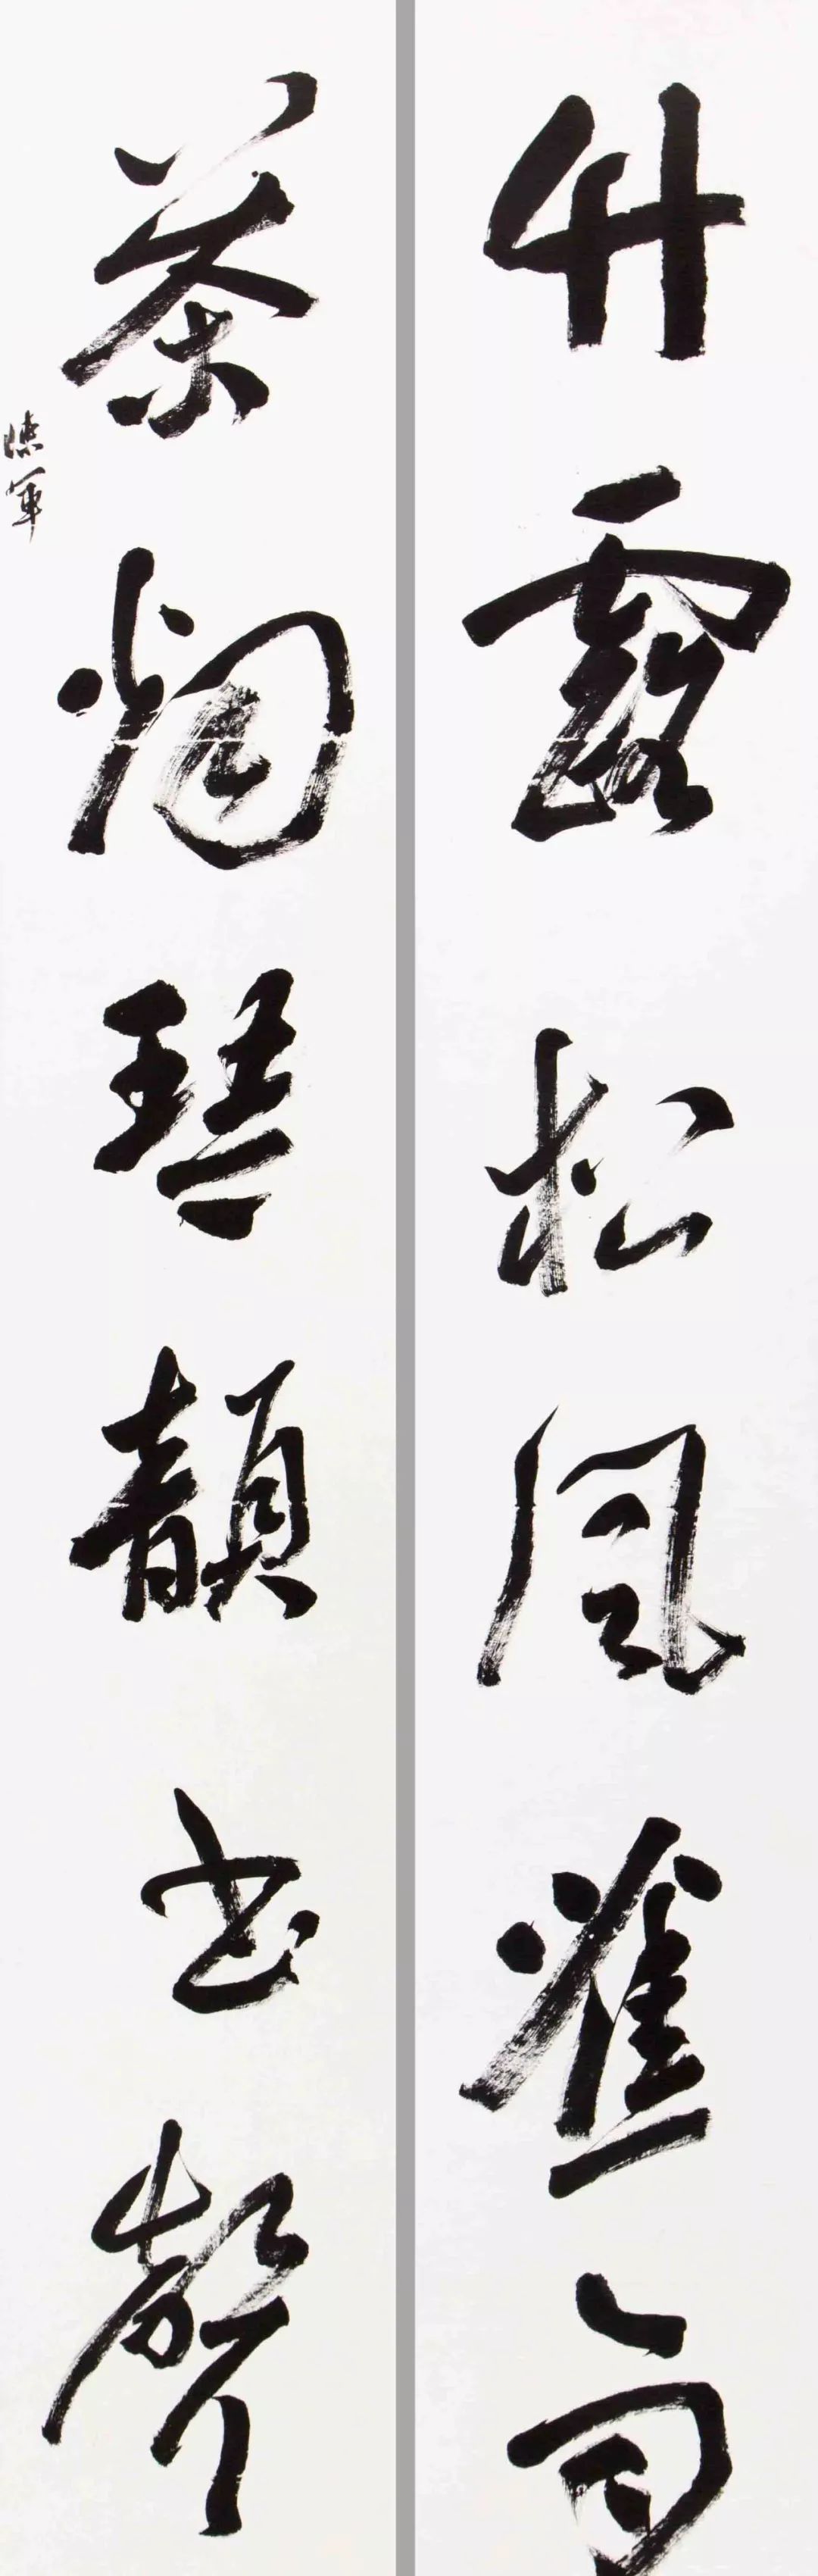 竹露松風蕉雨
茶烟琴韻書聲
德軍